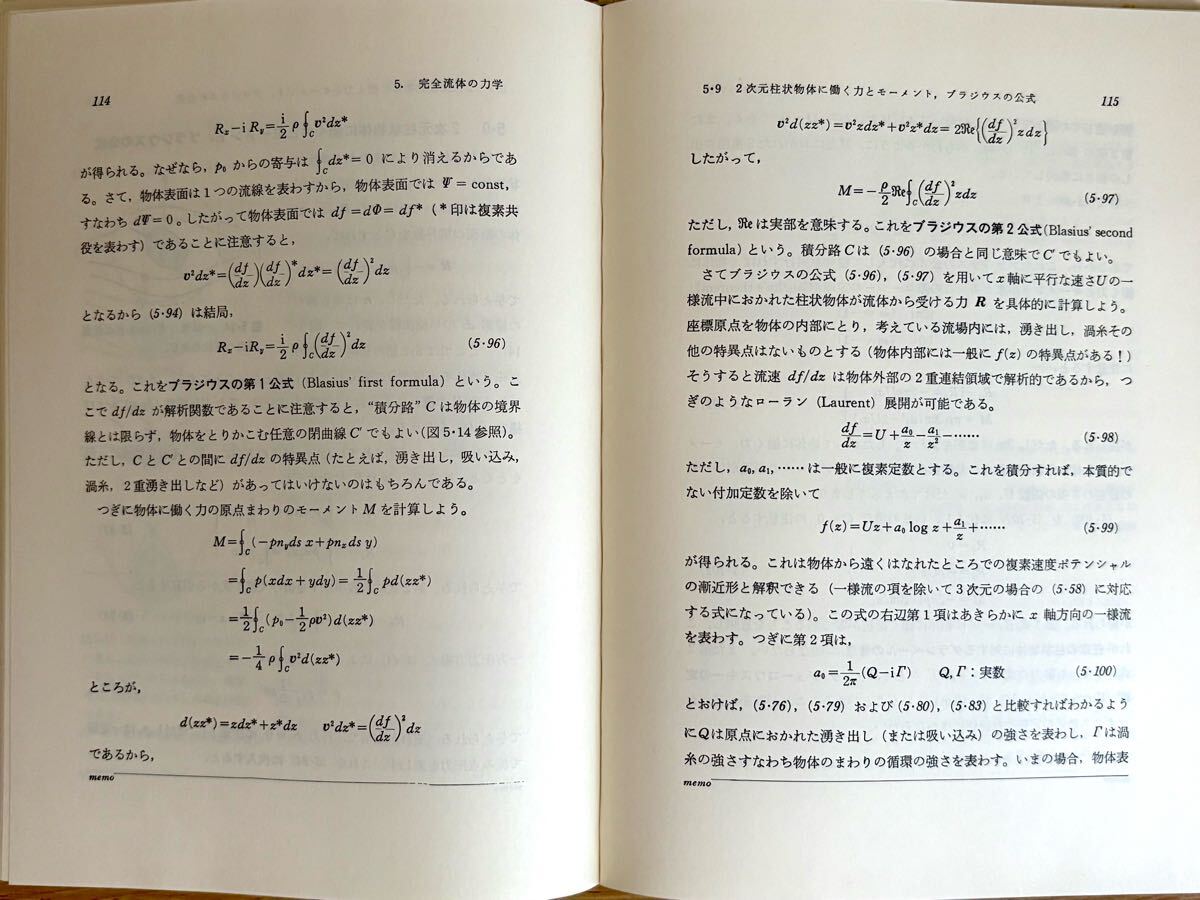 114
5. 完全流体の力学
Rx−i Ry=i/2 ρ∮C v²dz*
が得られる。なぜなら，p₀ からの寄与は ∮C dz*=0 により消えるからであ
る。さて，物体表面は1つの流線を表わすから，物体表面では Ψ=const，
すなわち dΨ=0。したがって物体表面では df=dΦ=df*（*印は複素共
役を表わす）であることに注意すると，
v²dz*=(df/dz)(df/dz)*dz*=(df/dz)²dz
となるから (5・94) は結局，
Rx−iRy=i/2 ρ∮C(df/dz)²dz (5・96)
となる。これをブラジウスの第1公式 (Blasius' first formula) という。こ
こで df/dz が解析関数であることに注意すると，“積分路” C は物体の境界
線とは限らず，物体をとりかこむ任意の閉曲線 C′ でもよい(図5・14参照)。
ただし，C と C′ との間に df/dz の特異点（たとえば，湧き出し，吸い込み，
渦糸，2重湧き出しなど）があってはいけないのはもちろんである。
つぎに物体に働く力の原点まわりのモーメント M を計算しよう。
M=∮C(−pnyds x+pnxds y)
=∮C p(xdx+ydy)=1/2∮C pd(zz*)
=1/2∮C(p₀−1/2ρv²)d(zz*)
=−1/4 ρ∮C v²d(zz*)
ところが，
d(zz*)=zdz*+z*dz v²dz*=(df/dz)²dz
であるから，
memo
5・9 2次元柱状物体に働く力とモーメント，ブラジウスの公式
115
v²d(zz*)=v²zdz*+v²z*dz=2ℜe{(df/dz)²zdz}
したがって，
M=−ρ/2 ℜe∮C(df/dz)²zdz (5・97)
ただし，ℜe は実部を意味する。これをブラジウスの第2公式(Blasius' second
formula) という。積分路 C は (5・96) の場合と同じ意味で C′ でもよい。
さてブラジウスの公式 (5・96)，(5・97) を用いて x 軸に平行な速さ U の一
様流中におかれた柱状物体が流体から受ける力 R を具体的に計算しよう。
座標原点を物体の内部にとり，考えている流場内には，湧き出し，渦糸その
他の特異点はないものとする（物体内部には一般に f(z) の特異点がある！）
そうすると流速 df/dz は物体外部の2重連結領域で解析的であるから，つ
ぎのようなローラン (Laurent) 展開が可能である。
df/dz=U+a₀/z−a₁/z²−…… (5・98)
ただし，a₀, a₁, …… は一般に複素定数とする。これを積分すれば，本質的で
ない付加定数を除いて
f(z)=Uz+a₀ log z+a₁/z+…… (5・99)
が得られる。これは物体から遠くはなれたところでの複素速度ポテンシャル
の漸近形と解釈できる（一様流の項を除いて3次元の場合の (5・58) に対応
する式になっている）。この式の右辺第1項はあきらかに x 軸方向の一様流
を表わす。つぎに第2項は，
a₀=1/2π(Q−iΓ) Q, Γ：実数 (5・100)
とおけば，(5・76)，(5・79) および (5・80)，(5・83) と比較すればわかるよう
に Q は原点におかれた湧き出し（または吸い込み）の強さを表わし，Γ は渦
糸の強さすなわち物体のまわりの循環の強さを表わす。いまの場合，物体表
memo